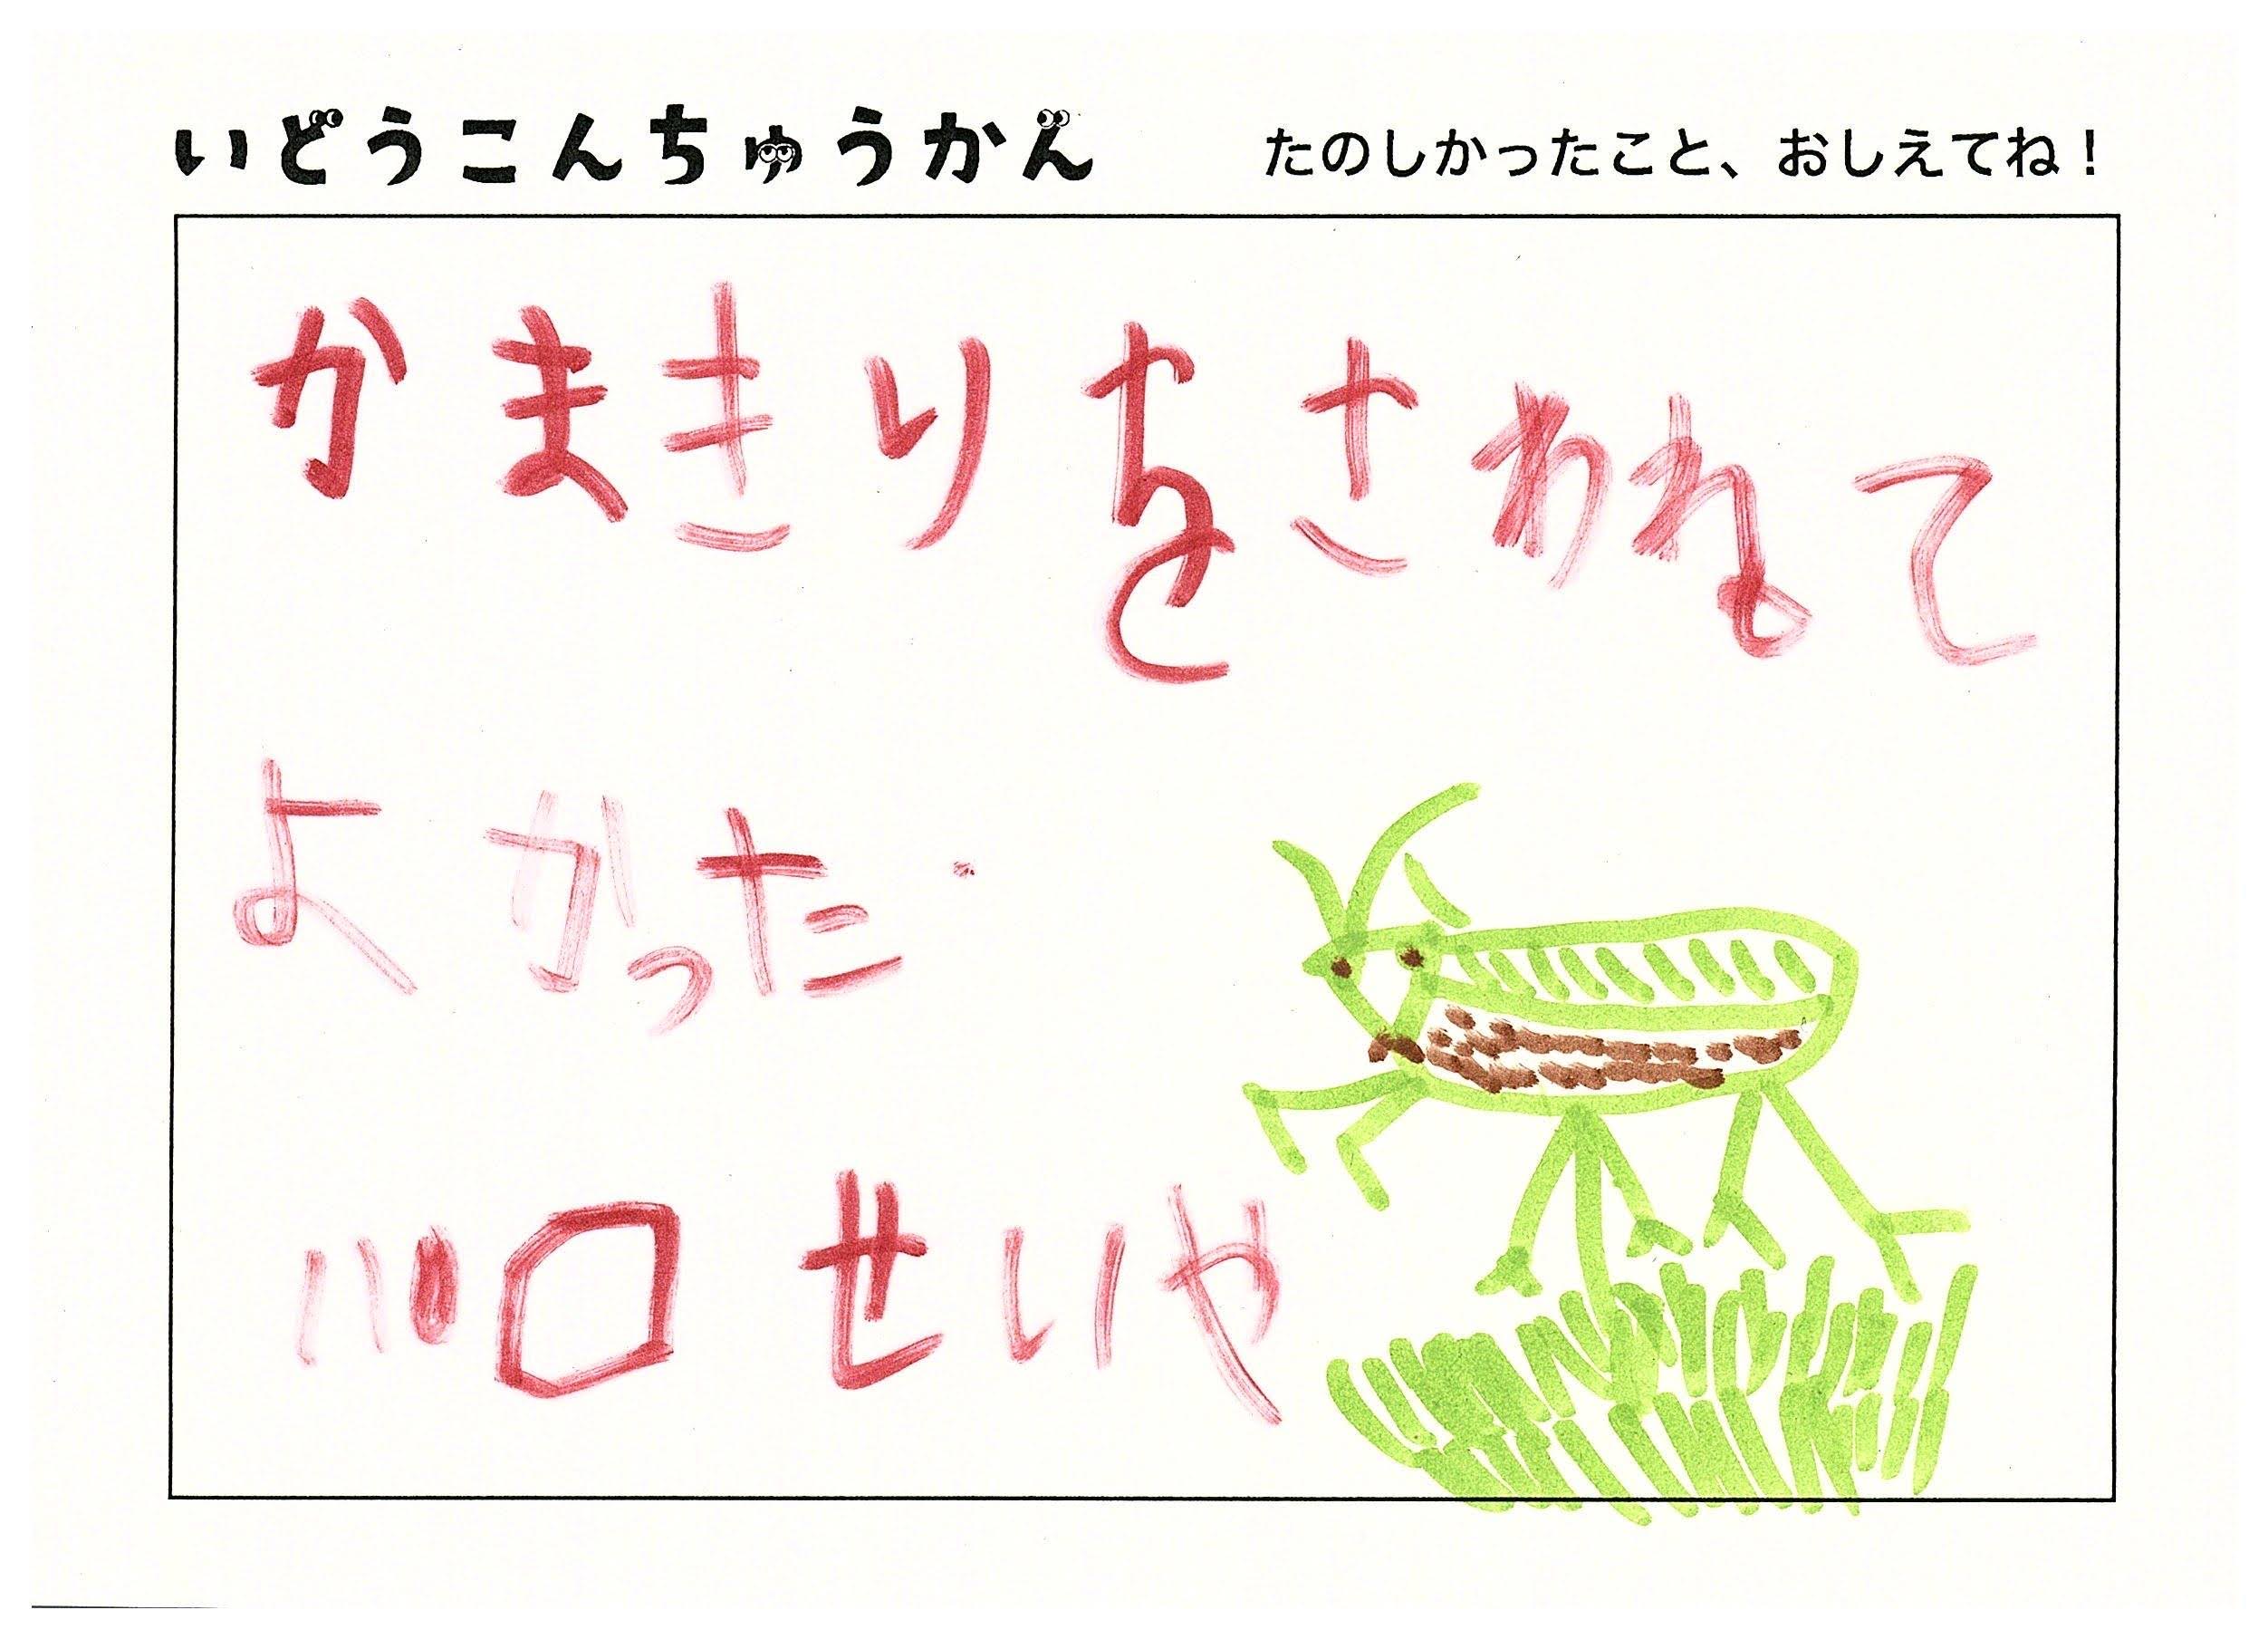 いどうこんちゅうかん たのしかったこと、おしえてね！
かまきりをさわねて
よかった
川口せいや